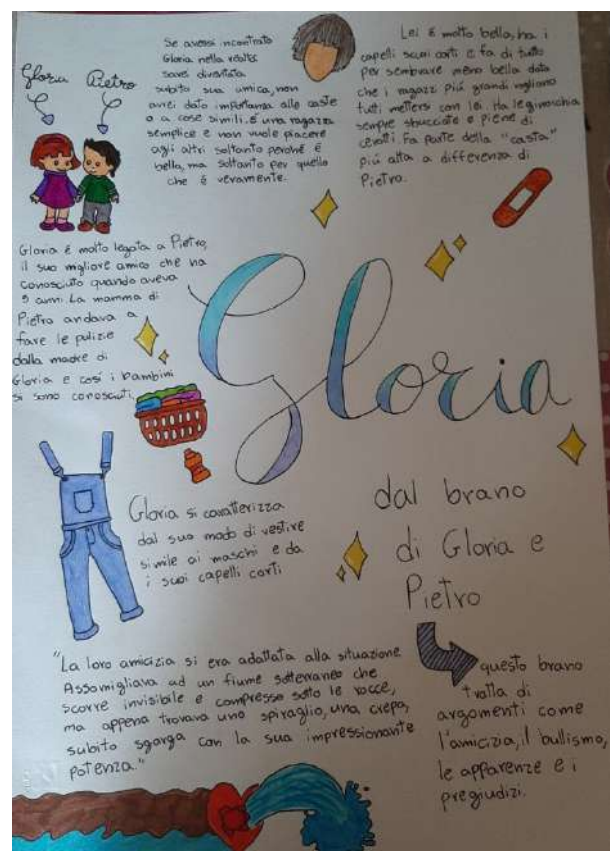 Gloria
Pietro
Se avessi incontrato
Gloria nella realtà
sarei diventata
subito sua amica, non
avrei dato importanza alle caste
o a cose simili. È una ragazza
semplice e non vuole piacere
agli altri soltanto perché è
bella, ma soltanto per quello
che è veramente.
Lei è molto bella, ha i
capelli scuri corti e fa di tutto
per sembrare meno bella dato
che i ragazzi più grandi vogliono
tutti mettersi con lei. Ha le ginocchia
sempre sbucciate e piene di
cerotti. Fa parte della "casta"
più alta a differenza di
Pietro.
Gloria è molto legata a Pietro,
il suo migliore amico che ha
conosciuto quando aveva
5 anni. La mamma di
Pietro andava a
fare le pulizie
dalla madre di
Gloria e così i bambini
si sono conosciuti.
Gloria
dal brano
di Gloria e
Pietro
Gloria si caratterizza
dal suo modo di vestire
simile ai maschi e da
i suoi capelli corti
"La loro amicizia si era adattata alla situazione
Assomigliava ad un fiume sotterraneo che
scorre invisibile e compresso sotto le rocce,
ma appena trovava uno spiraglio, una crepa,
subito sgorga con la sua impressionante
potenza."
questo brano
tratta di
argomenti come
l'amicizia, il bullismo,
le apparenze e i
pregiudizi.